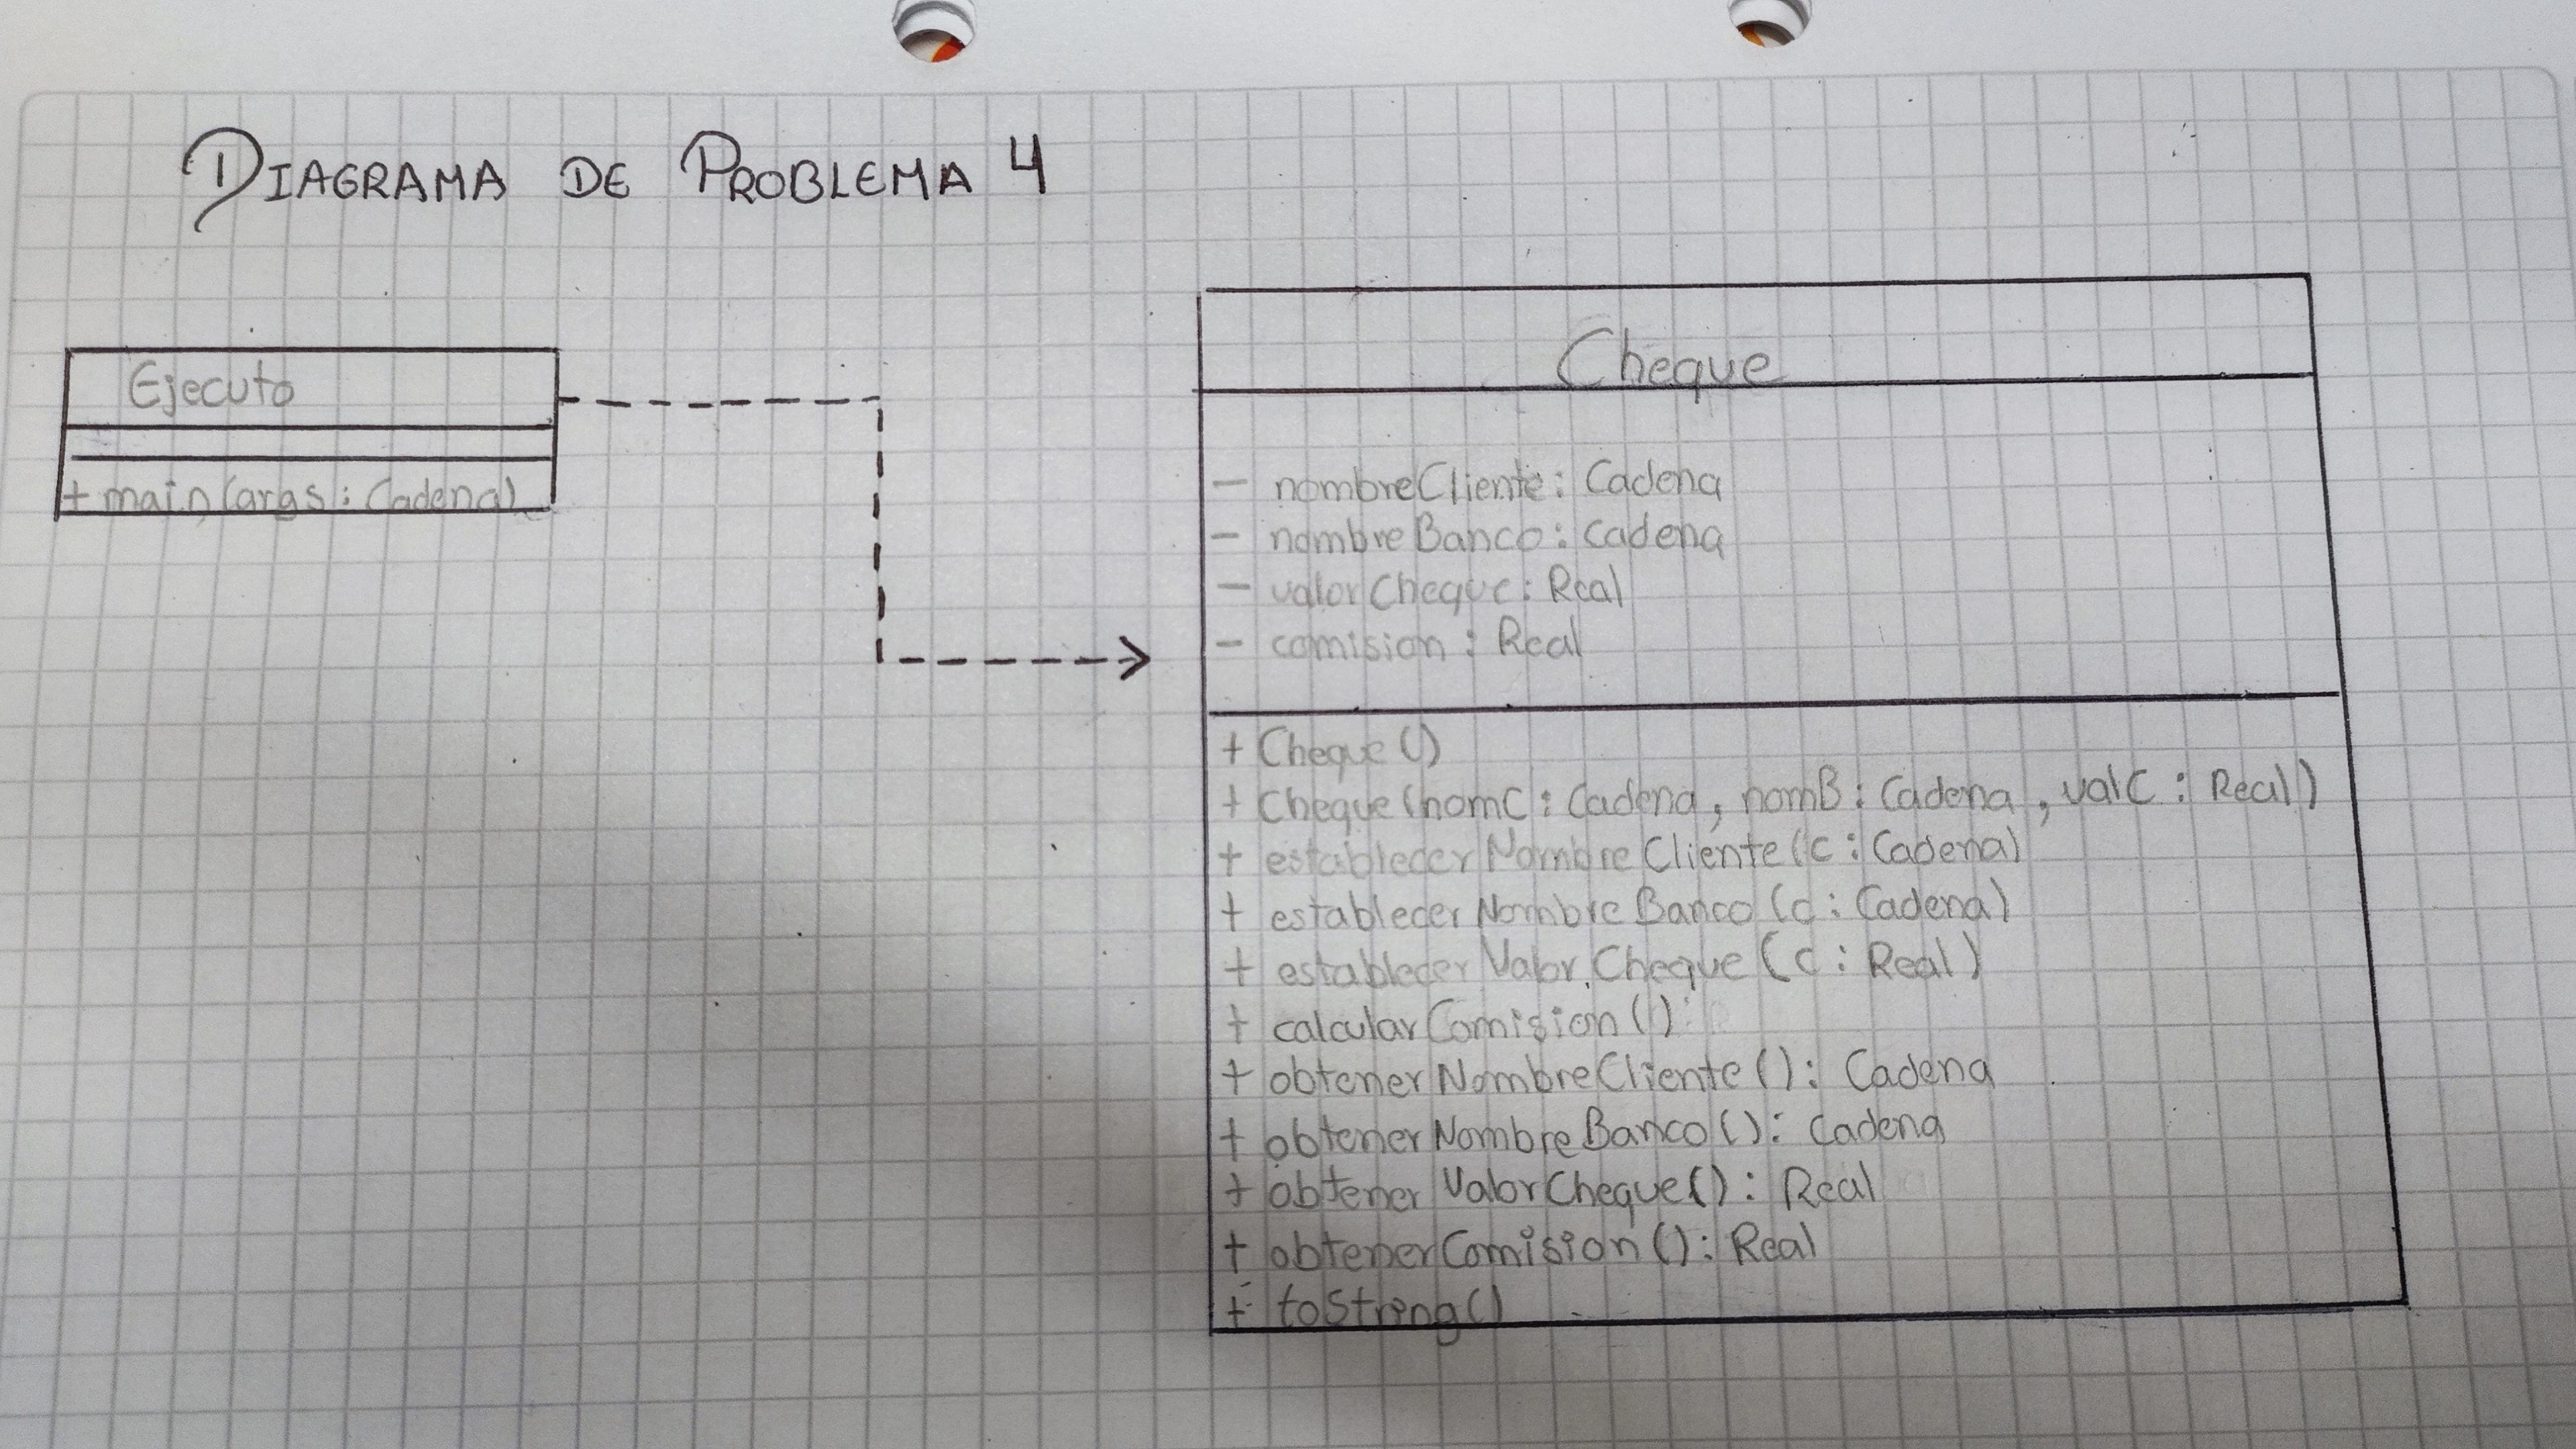 DIAGRAMA DE PROBLEMA 4
Ejecuto
+ main(args: Cadena)
Cheque
- nombreCliente: Cadena
- nombreBanco: Cadena
- valorCheque: Real
- comision: Real
+ Cheque()
+ Cheque(nomC: Cadena, nomB: Cadena, valC: Real)
+ establecerNombreCliente(c: Cadena)
+ establecerNombreBanco(c: Cadena)
+ establecerValorCheque(c: Real)
+ calcularComision()
+ obtenerNombreCliente(): Cadena
+ obtenerNombreBanco(): Cadena
+ obtenerValorCheque(): Real
+ obtenerComision(): Real
+ toString()